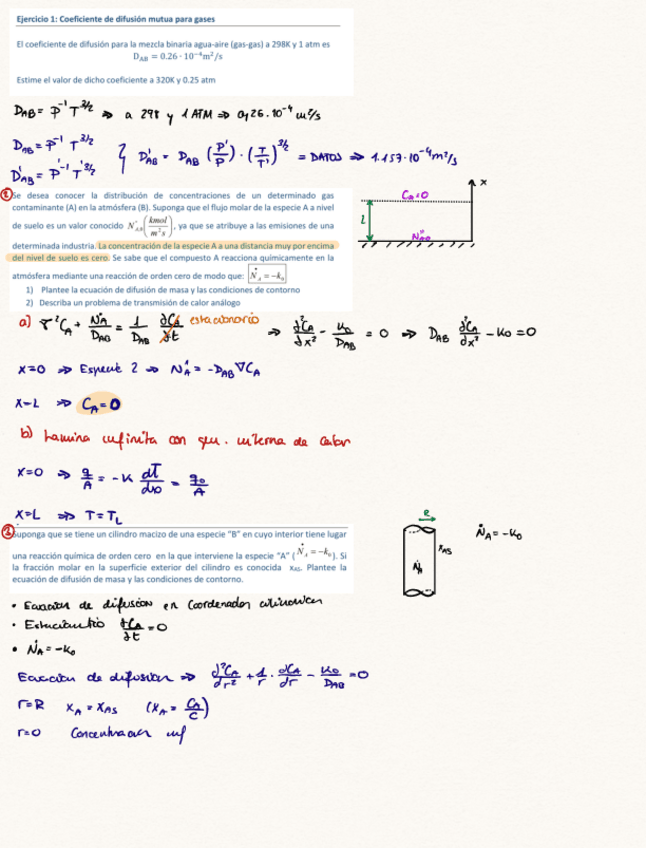 Ejercicio 1: Coeficiente de difusión mutua para gases
El coeficiente de difusión para la mezcla binaria agua-aire (gas-gas) a 298K y 1 atm es
D_AB = 0.26 · 10⁻⁴ m²/s
Estime el valor de dicho coeficiente a 320K y 0.25 atm
D_AB = P⁻¹ T^3/2 ⇒ a 298 y 1 ATM ⇒ 0,26·10⁻⁴ m²/s
D_AB = P⁻¹ T^3/2
D'_AB = P'⁻¹ T'^3/2
D'_AB = D_AB (P'/P) · (T/T')^3/2 = DATOS ⇒ 1.157·10⁻⁴ m²/s
2 Se desea conocer la distribución de concentraciones de un determinado gas
contaminante (A) en la atmósfera (B). Suponga que el flujo molar de la especie A a nivel
de suelo es un valor conocido N''_A,0 (kmol/m² s), ya que se atribuye a las emisiones de una
determinada industria. La concentración de la especie A a una distancia muy por encima
del nivel de suelo es cero. Se sabe que el compuesto A reacciona químicamente en la
atmósfera mediante una reacción de orden cero de modo que: Ṅ_A = −k₀
1) Plantee la ecuación de difusión de masa y las condiciones de contorno
2) Describa un problema de transmisión de calor análogo
x
C_A=0
L
N''_A,0
a) ∇²C_A + Ṅ_A/D_AB = 1/D_AB ∂C_A/∂t estacionario ⇒ ∂²C_A/∂x² − k₀/D_AB = 0 ⇒ D_AB ∂²C_A/∂x² − k₀ = 0
x=0 ⇒ Especie 2 ⇒ N''_A = −D_AB ∇C_A
x=L ⇒ C_A = 0
b) Lamina infinita con gen. interna de calor
x=0 ⇒ q/A = −k dT/dx = q₀/A
x=L ⇒ T = T_L
3 Suponga que se tiene un cilindro macizo de una especie "B" en cuyo interior tiene lugar
una reacción química de orden cero en la que interviene la especie "A" (Ṅ_A = −k₀). Si
la fracción molar en la superficie exterior del cilindro es conocida x_AS. Plantee la
ecuación de difusión de masa y las condiciones de contorno.
R
x_AS
Ṅ_A
Ṅ_A = −k₀
• Ecuación de difusión en coordenadas cilíndricas
• Estacionario ∂C_A/∂t = 0
• Ṅ_A = −k₀
Ecuación de difusión ⇒ d²C_A/dr² + 1/r · dC_A/dr − k₀/D_AB = 0
r=R x_A = x_AS (x_A = C_A/C)
r=0 Concentración inf